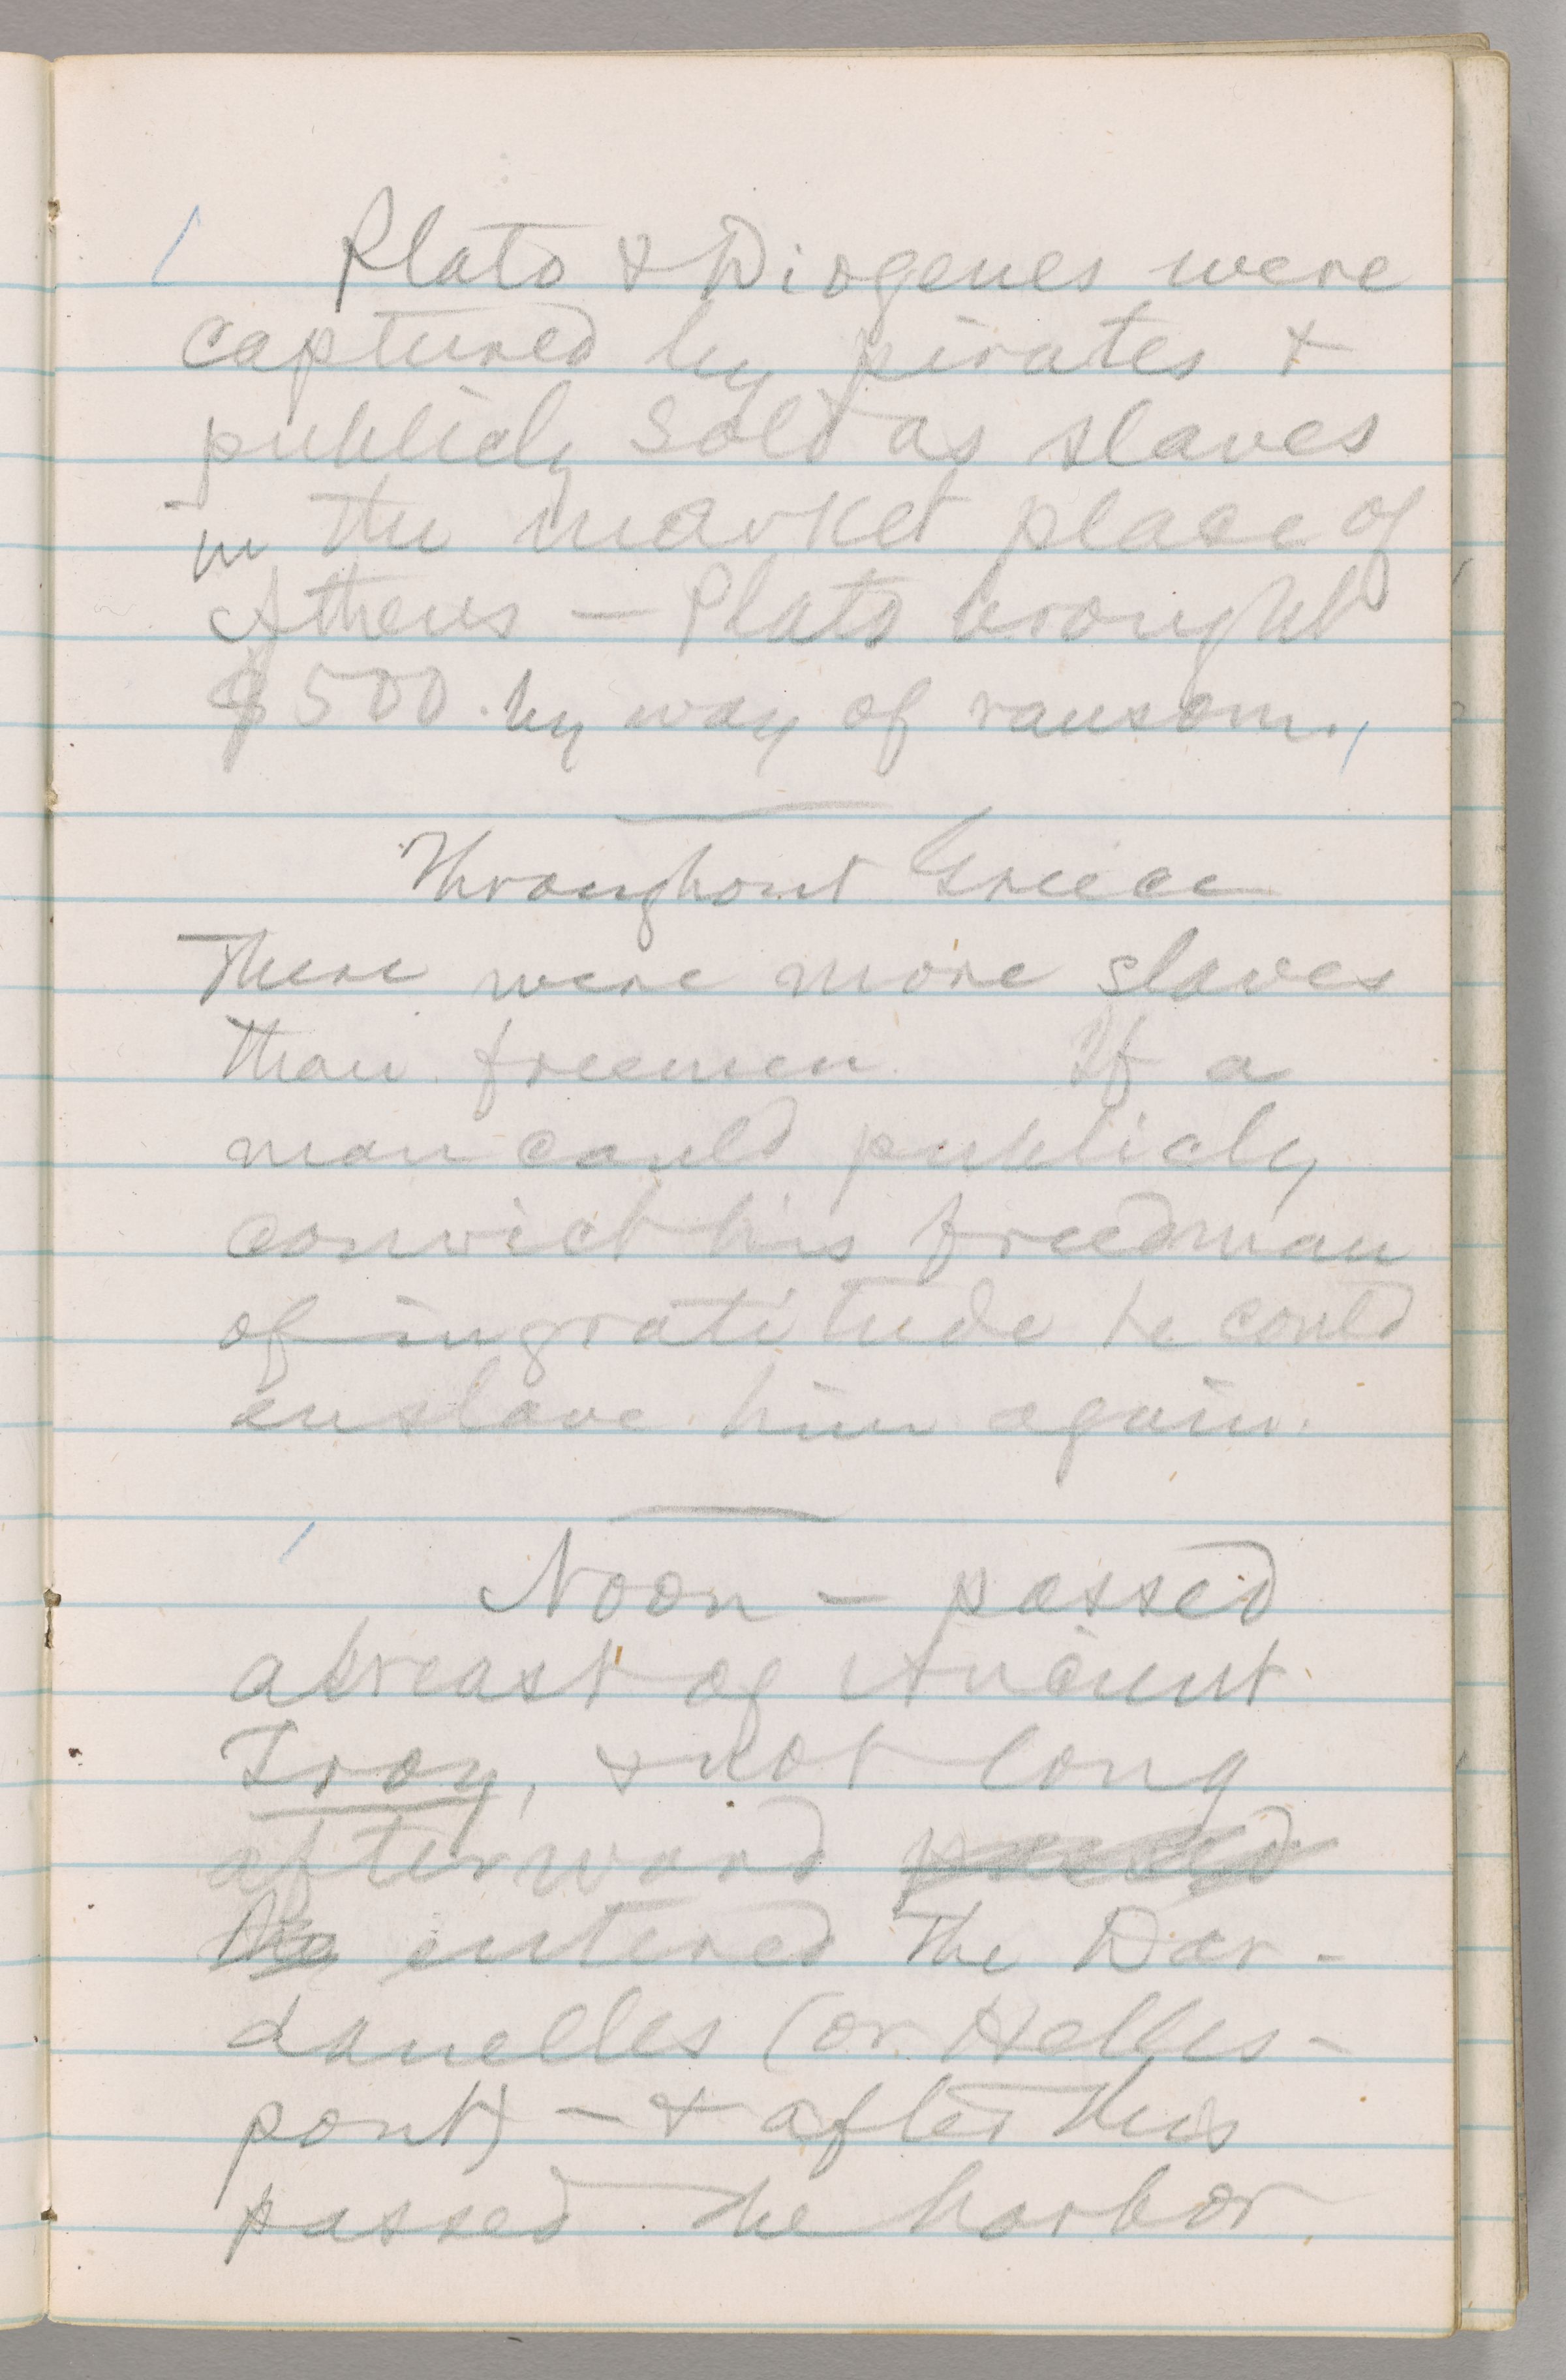 Plato & Diogenes were
captured by pirates &
publicly sold as slaves
in the market place of
Athens — Plato brought
$500. by way of ransom.
Throughout Greece
there were more slaves
than freemen. If a
man could publicly
convict his freedman
of ingratitude he could
enslave him again.
Noon — passed
abreast of Ancient
Troy, & not long
afterward passed
the entered the Dar-
danelles (or Helles-
pont) — & after this
passed the harbor